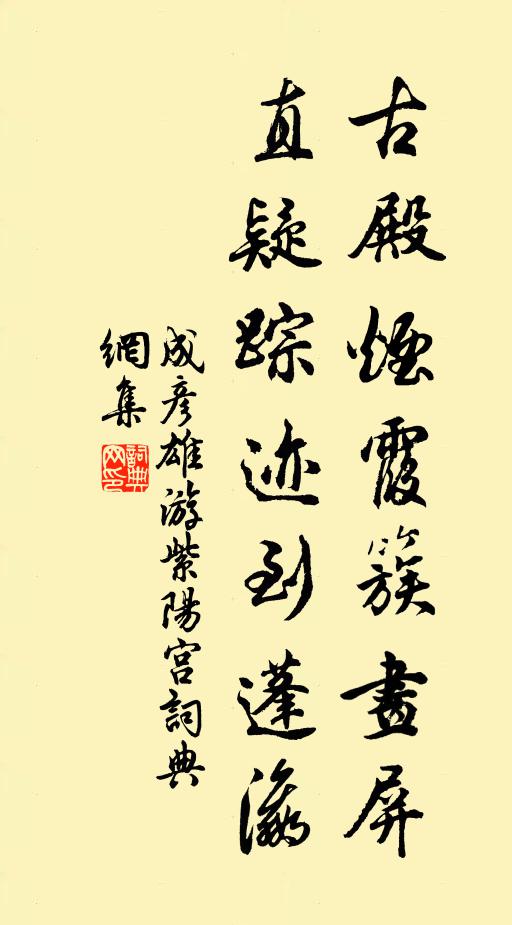 古殿煙霞簇畫屏
直疑踪迹到蓬瀛
成彥雄游紫陽宮詞典
網集
詞典網印